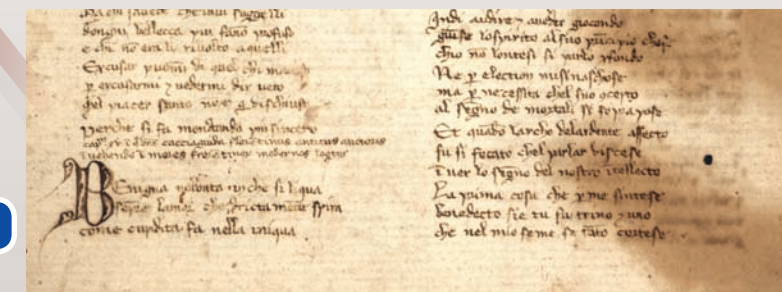 dongni bellecca piu fano
e chi no era li rivolto a quelli
Excusar puomi di quel chi
p excusarmi 7 vedermi dir vero
chel piacer santo no e q dischiuso
perche si fa montando piu sincero
cacciaguida florentinus antiquus
mores modernos
Benigna volonta in che si liqua
sepre lamor che dricta mete spira
come cupidita fa nella iniqua
Indi audire 7 aveder giocondo
giuse lospirito al suo pncipio
chio no lontesi si parlo pfondo
Ne p election misinaschose
ma p necessita chel suo ocepto
al segno de mortali si sopra pose
Et quado larcho delardente affecto
fu si focato chel parlar discese
Iver lo segno del nostro itellecto
La prima cosa che p me sintese
benedecto sie tu fu trino 7 uno
che nel mio seme se tato cortese